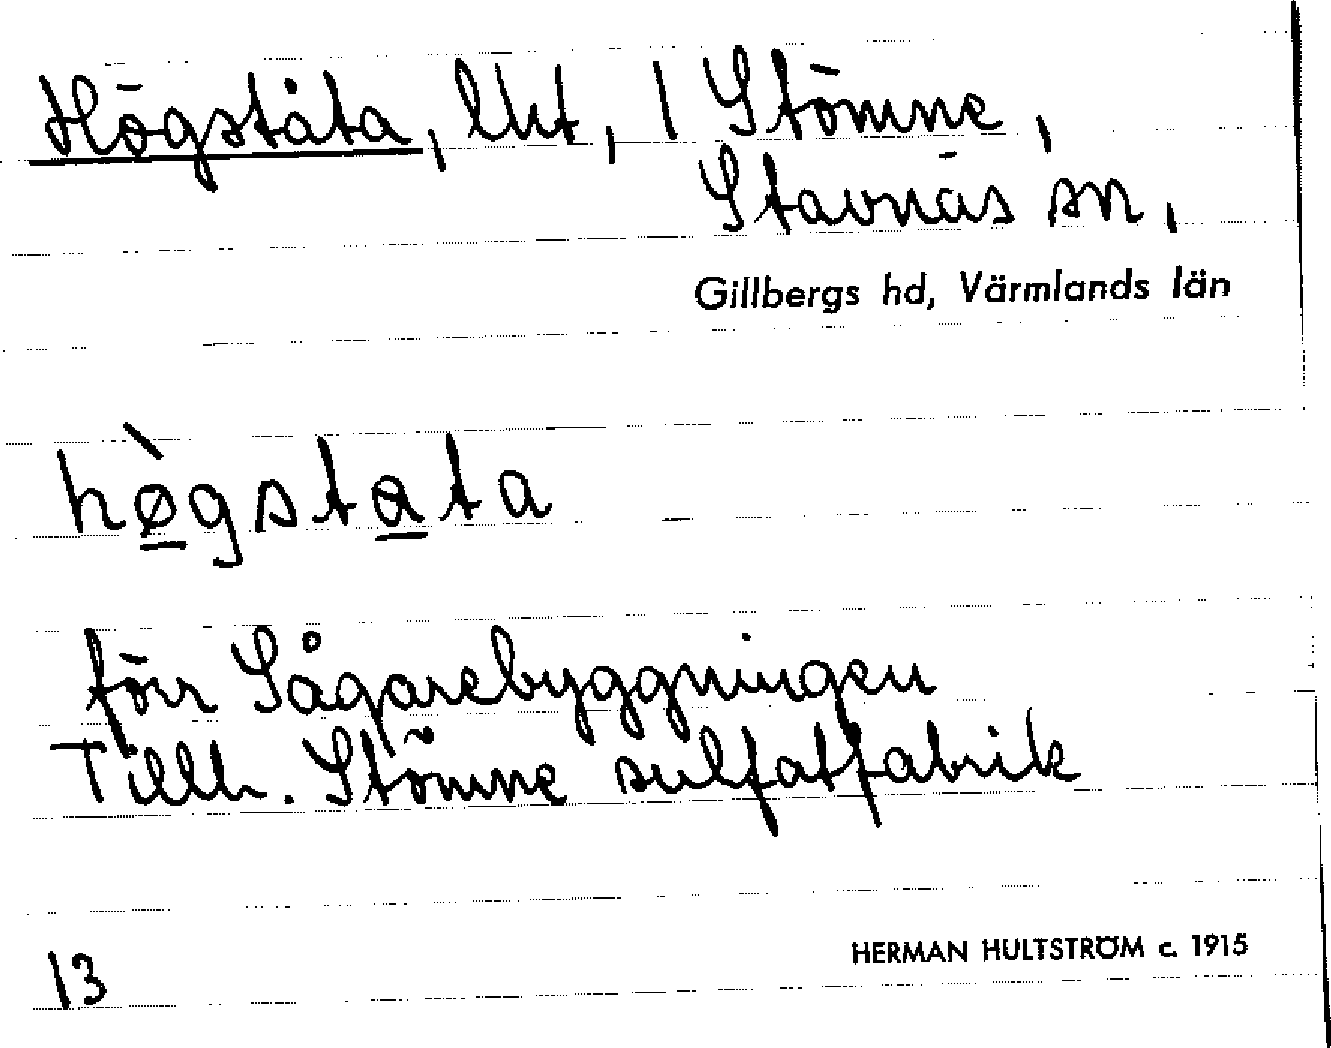 Högståta, lht, 1 Stömne,
Stavnäs sn,
Gillbergs hd, Värmlands län
hø̀gstata
förr Sågarebyggningen
Tillh. Stömne sulfatfabrik
13
HERMAN HULTSTRÖM c. 1915